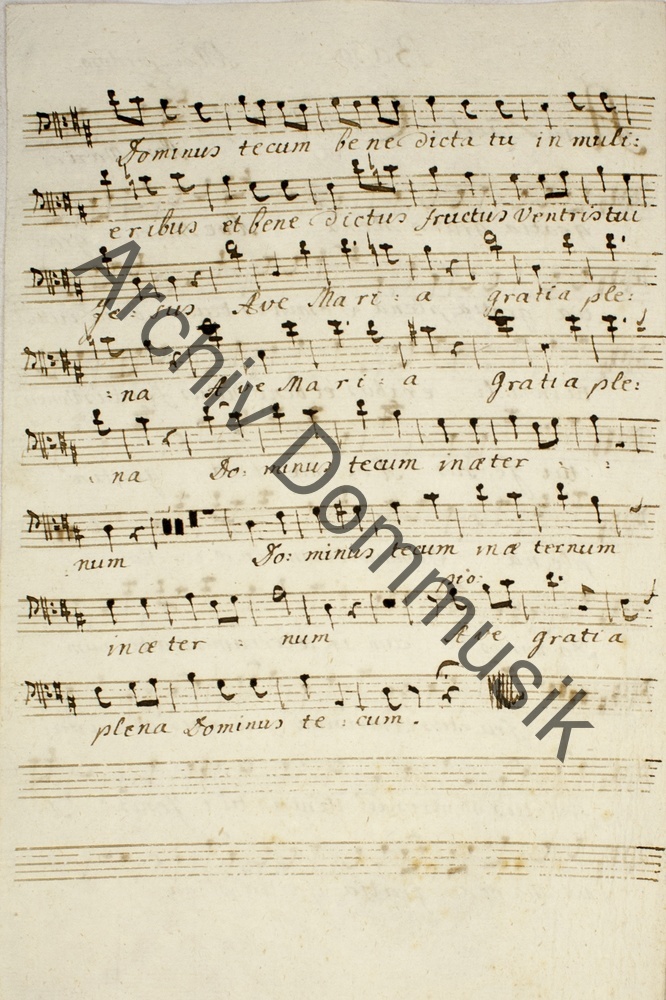 Dominus tecum benedicta tu in muli:
eribus et bene dictus fructus Ventris tui
Je: sus Ave Mari: a gratia ple:
: na Ave Mari: a gratia ple:
na Do: minus tecum inæter : :
num Do: minus tecum inæ ternum
pio:
inæter : num Ave gratia
plena Dominus te: cum.
Archiv Dommusik